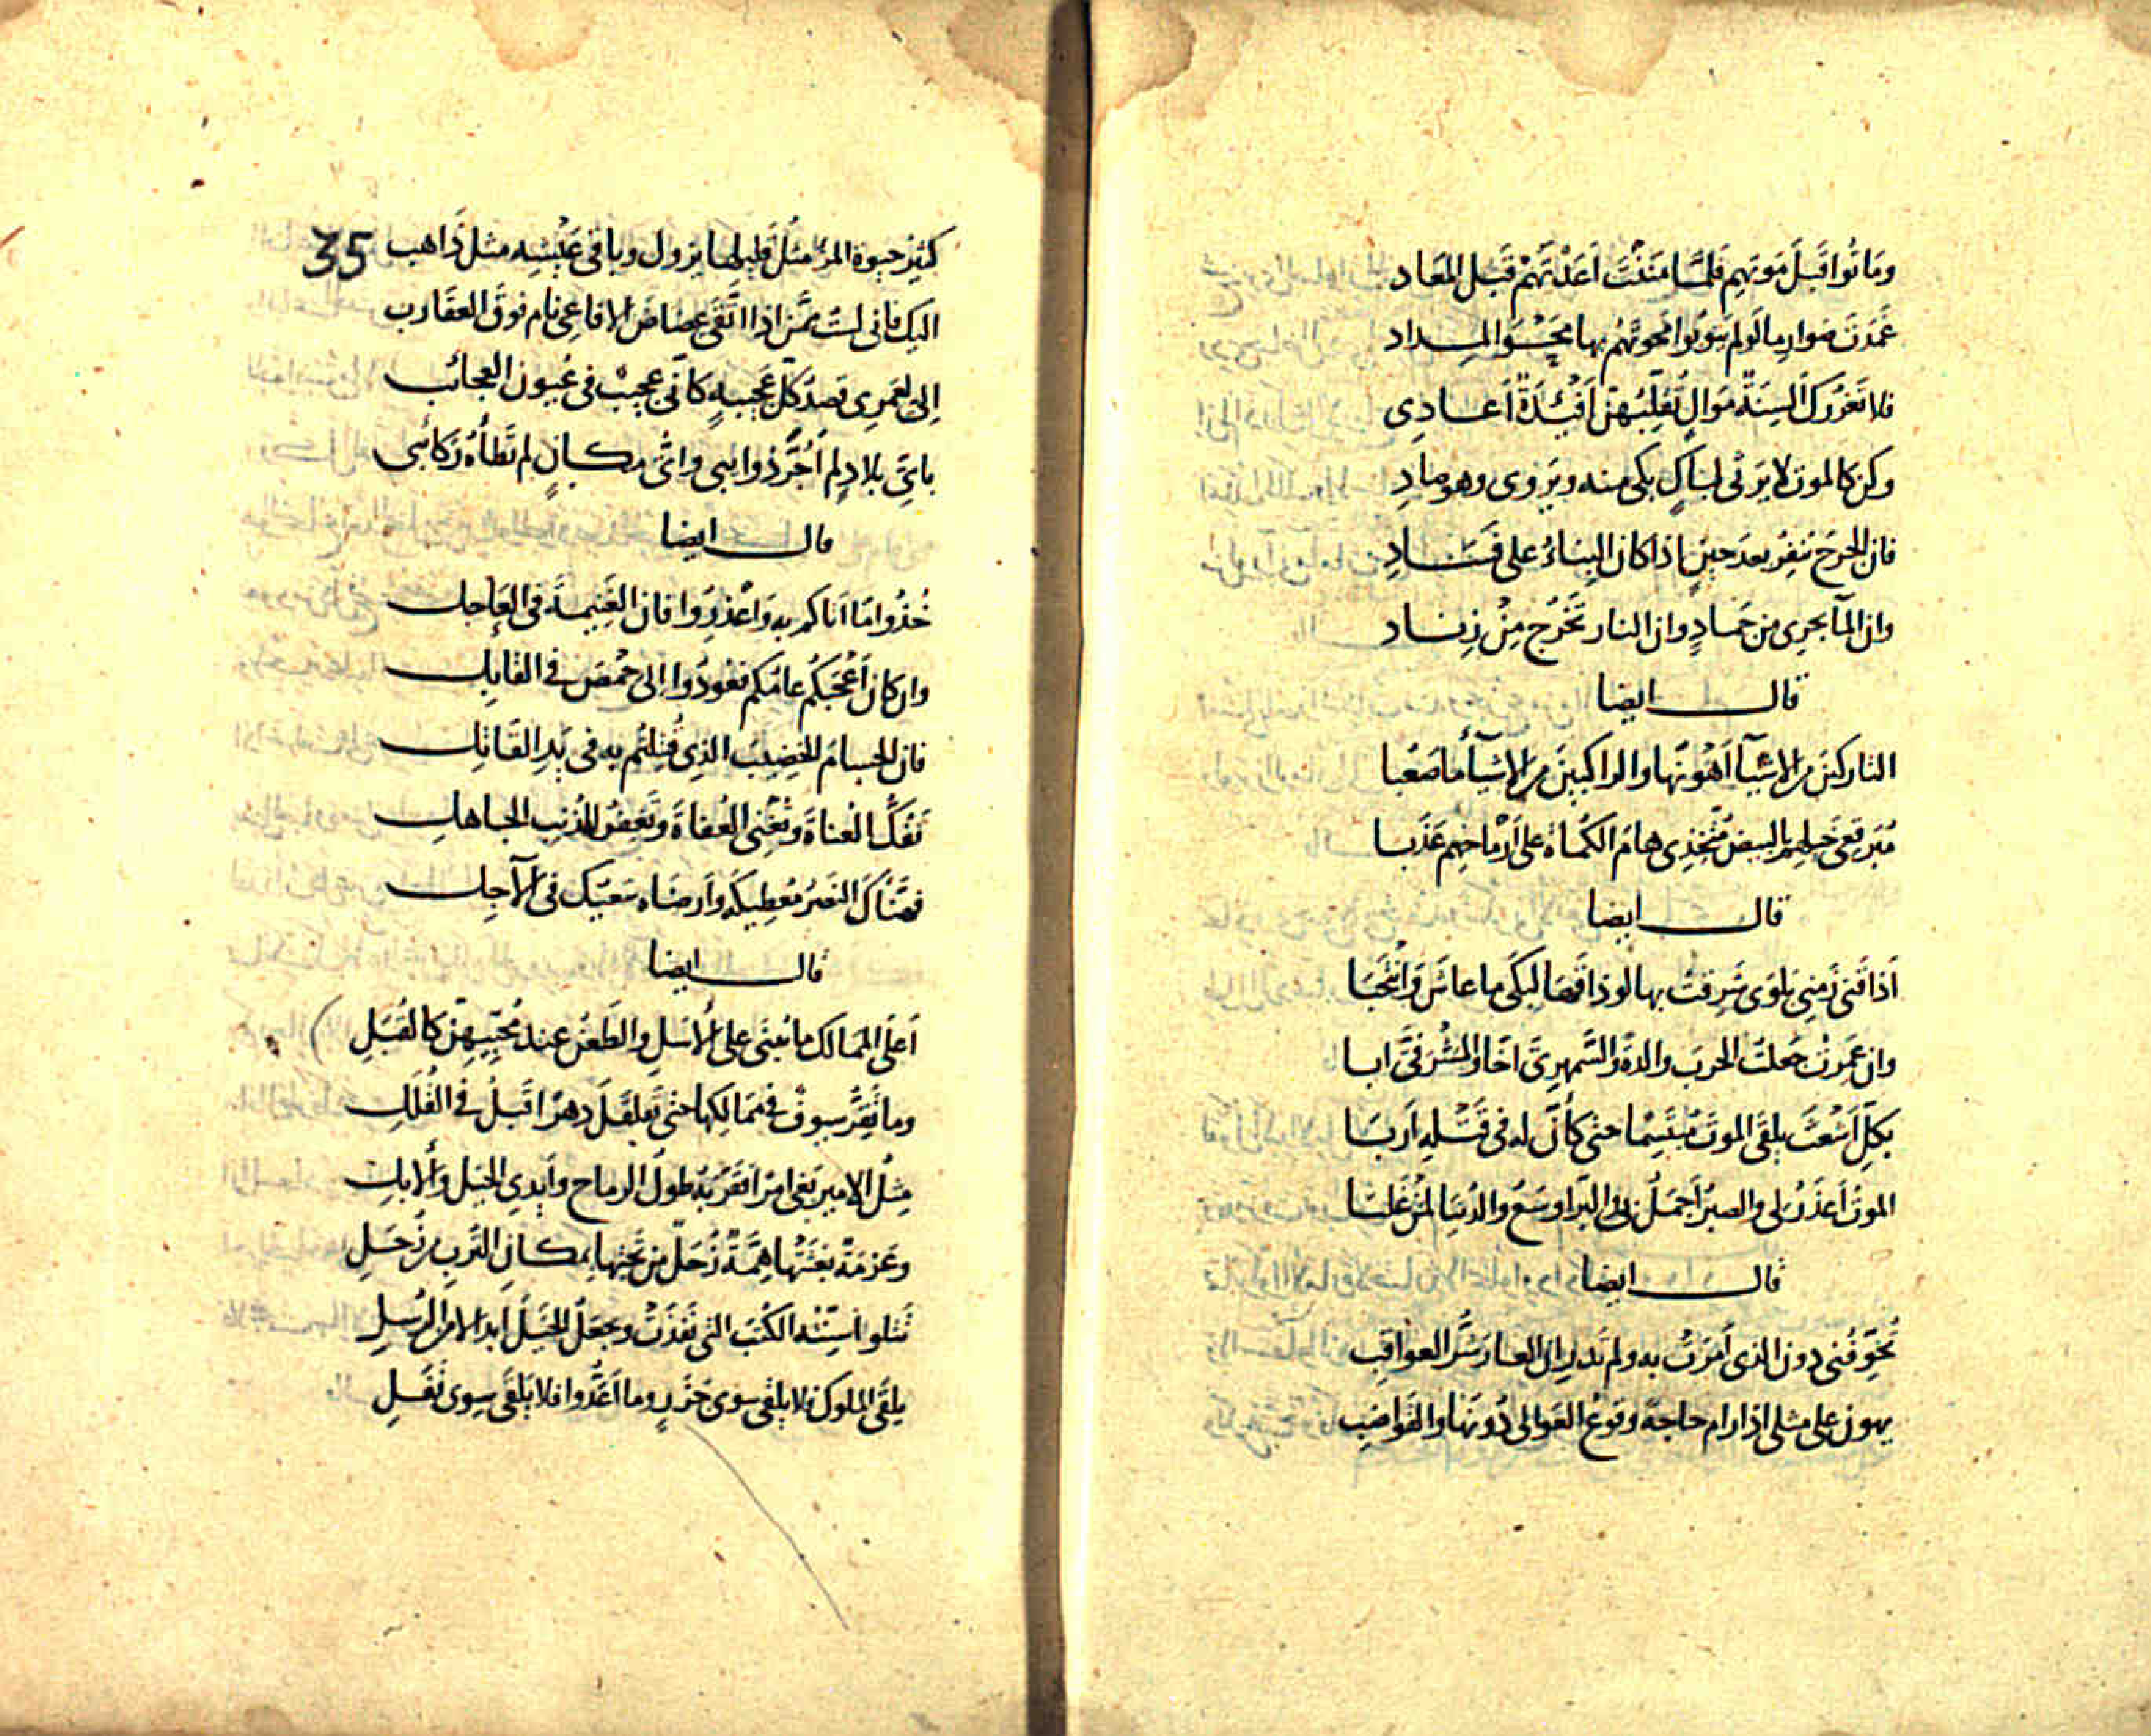 ومَاتُوا قَبلَ مَوتِهِم فَلمَّا مَنَنْتَ اَعَدْتَهُمْ قَبلَ المَعَاد
غَمَدتَ صَوارِما لَو لم يَتوبُوا مَحَوتَهُم بها مَحْوَ المِداد
فلا تَغرُركَ اَلسِنَةٌ مَوالٍ تُقَلِّبُهنّ اَفئِدَةٌ اَعادِى
وكن كالموت لا يَرثى لباكٍ بكى منه ويَروى وهو صادِ
فان الجرحَ يَنفِرُ بعدَ حينٍ اذا كان البِناءُ على فَسَادِ
وان المآ يجرى من جَمادٍ وان النار تَخرُج مِنْ زِناد
قال ايضا
التاركينَ من الاشيآ اَهْوَنَها والراكبينَ من الاشيآ ما صَعُبا
مُبَرقِعى خيلِهم بالبيض مُتّخِذى هامَ الكُماة على اَرْماحِهم عَذَبا
قال ايضا
اَذاقَنى زَمنى بَلوَى شَرِقتُ بها لو ذاقَها لَبكَى ما عاشَ وَانْتَحَبَا
وان عَمِرتُ جَعلتُ الحربَ والدةً والسَّمهرِىَّ اخًا والمَشْرَفىَّ ابا
بكلّ اَشعَثَ يلقَى الموتَ مُبتَسِمًا حتى كأنّ له فى قَتلِهِ اَرَبَا
الموتُ اَعذَرُ لى والصبرُ اَجمَلُ بى والبَرّ اوسَعُ والدُنيَا لمَن غَلبَا
قال ايضا
تُخَوِّفُنى دون الذى اَمَرَت به ولم تَدرِ ان العارَ شرُّ العواقِبِ
يهون على مثلى اذا رام حاجة وقوعُ العَوالى دُونَها والقَواضِبِ
35
كثيرُ حيوة المرء مثلُ قليلها يزول وباقى عَيْشِهِ مثل ذَاهب
اليك فانى لستُ ممّن اذا اتَّقَى عِضاضَ الافاعِى نام فوقَ العقَارب
اِلىّ لعَمرِى قَصدُ كلّ عَجيبةٍ كانّى عجيبٌ فى عُيون العجائب
باىّ بلادٍ لم اَجُرَّ ذوائبى واىّ مكانٍ لم تَطَأهُ رَكائبى
قال ايضا
خُذُوا مَا اَتاكم به وَاعْذِرُوا فان الغَنيمةَ فى العَاجلِ
وان كان اَعْجَبَكُم عامُكم فعُودُوا الى حِمْصَ فى القابِلِ
فان الحسامَ الخضِيبَ الذِى قُتِلتُم به فى يَدِ القَاتِلِ
تَفُكُّ العُناةَ وتُغْنى العُفاةَ وتَغفِرُ للمُذنِب الجاهلِ
فهَنَّاكَ النصرَ مُعطِيكَهُ وَاَرضَاه سَعيُكَ فى الآجِلِ
قال ايضا
اَعلَى الممَالك ما يُبنَى على الاَسَلِ والطَعنُ عند مُحِبّيهِنّ كالقُبَلِ
وما تَقَرُّ سيوفٌ فى ممَالكها حتى تَقلقَلَ دهرًا قَبلُ فى القُلَلِ
مِثلُ الاميرِ بَغى امرًا فقَرّبَهُ طولُ الرماح واَيدِى الخيلِ وَالابلِ
وعَزمَةٌ بَعثَتْها هِمَّةٌ زُحَلٌ من تحتها بمكان التُربِ من زُحَلِ
تَتلو اَسِنّتُه الكُتبَ التى نفَذَتْ ويجعَلُ الخَيلَ ابدالا من الرُسلِ
يلقَى الملوكَ فلا يلقَى سوى جَزَرٍ وما اَعَدُّوا فلا يَلقَى سِوى نَفَلِ